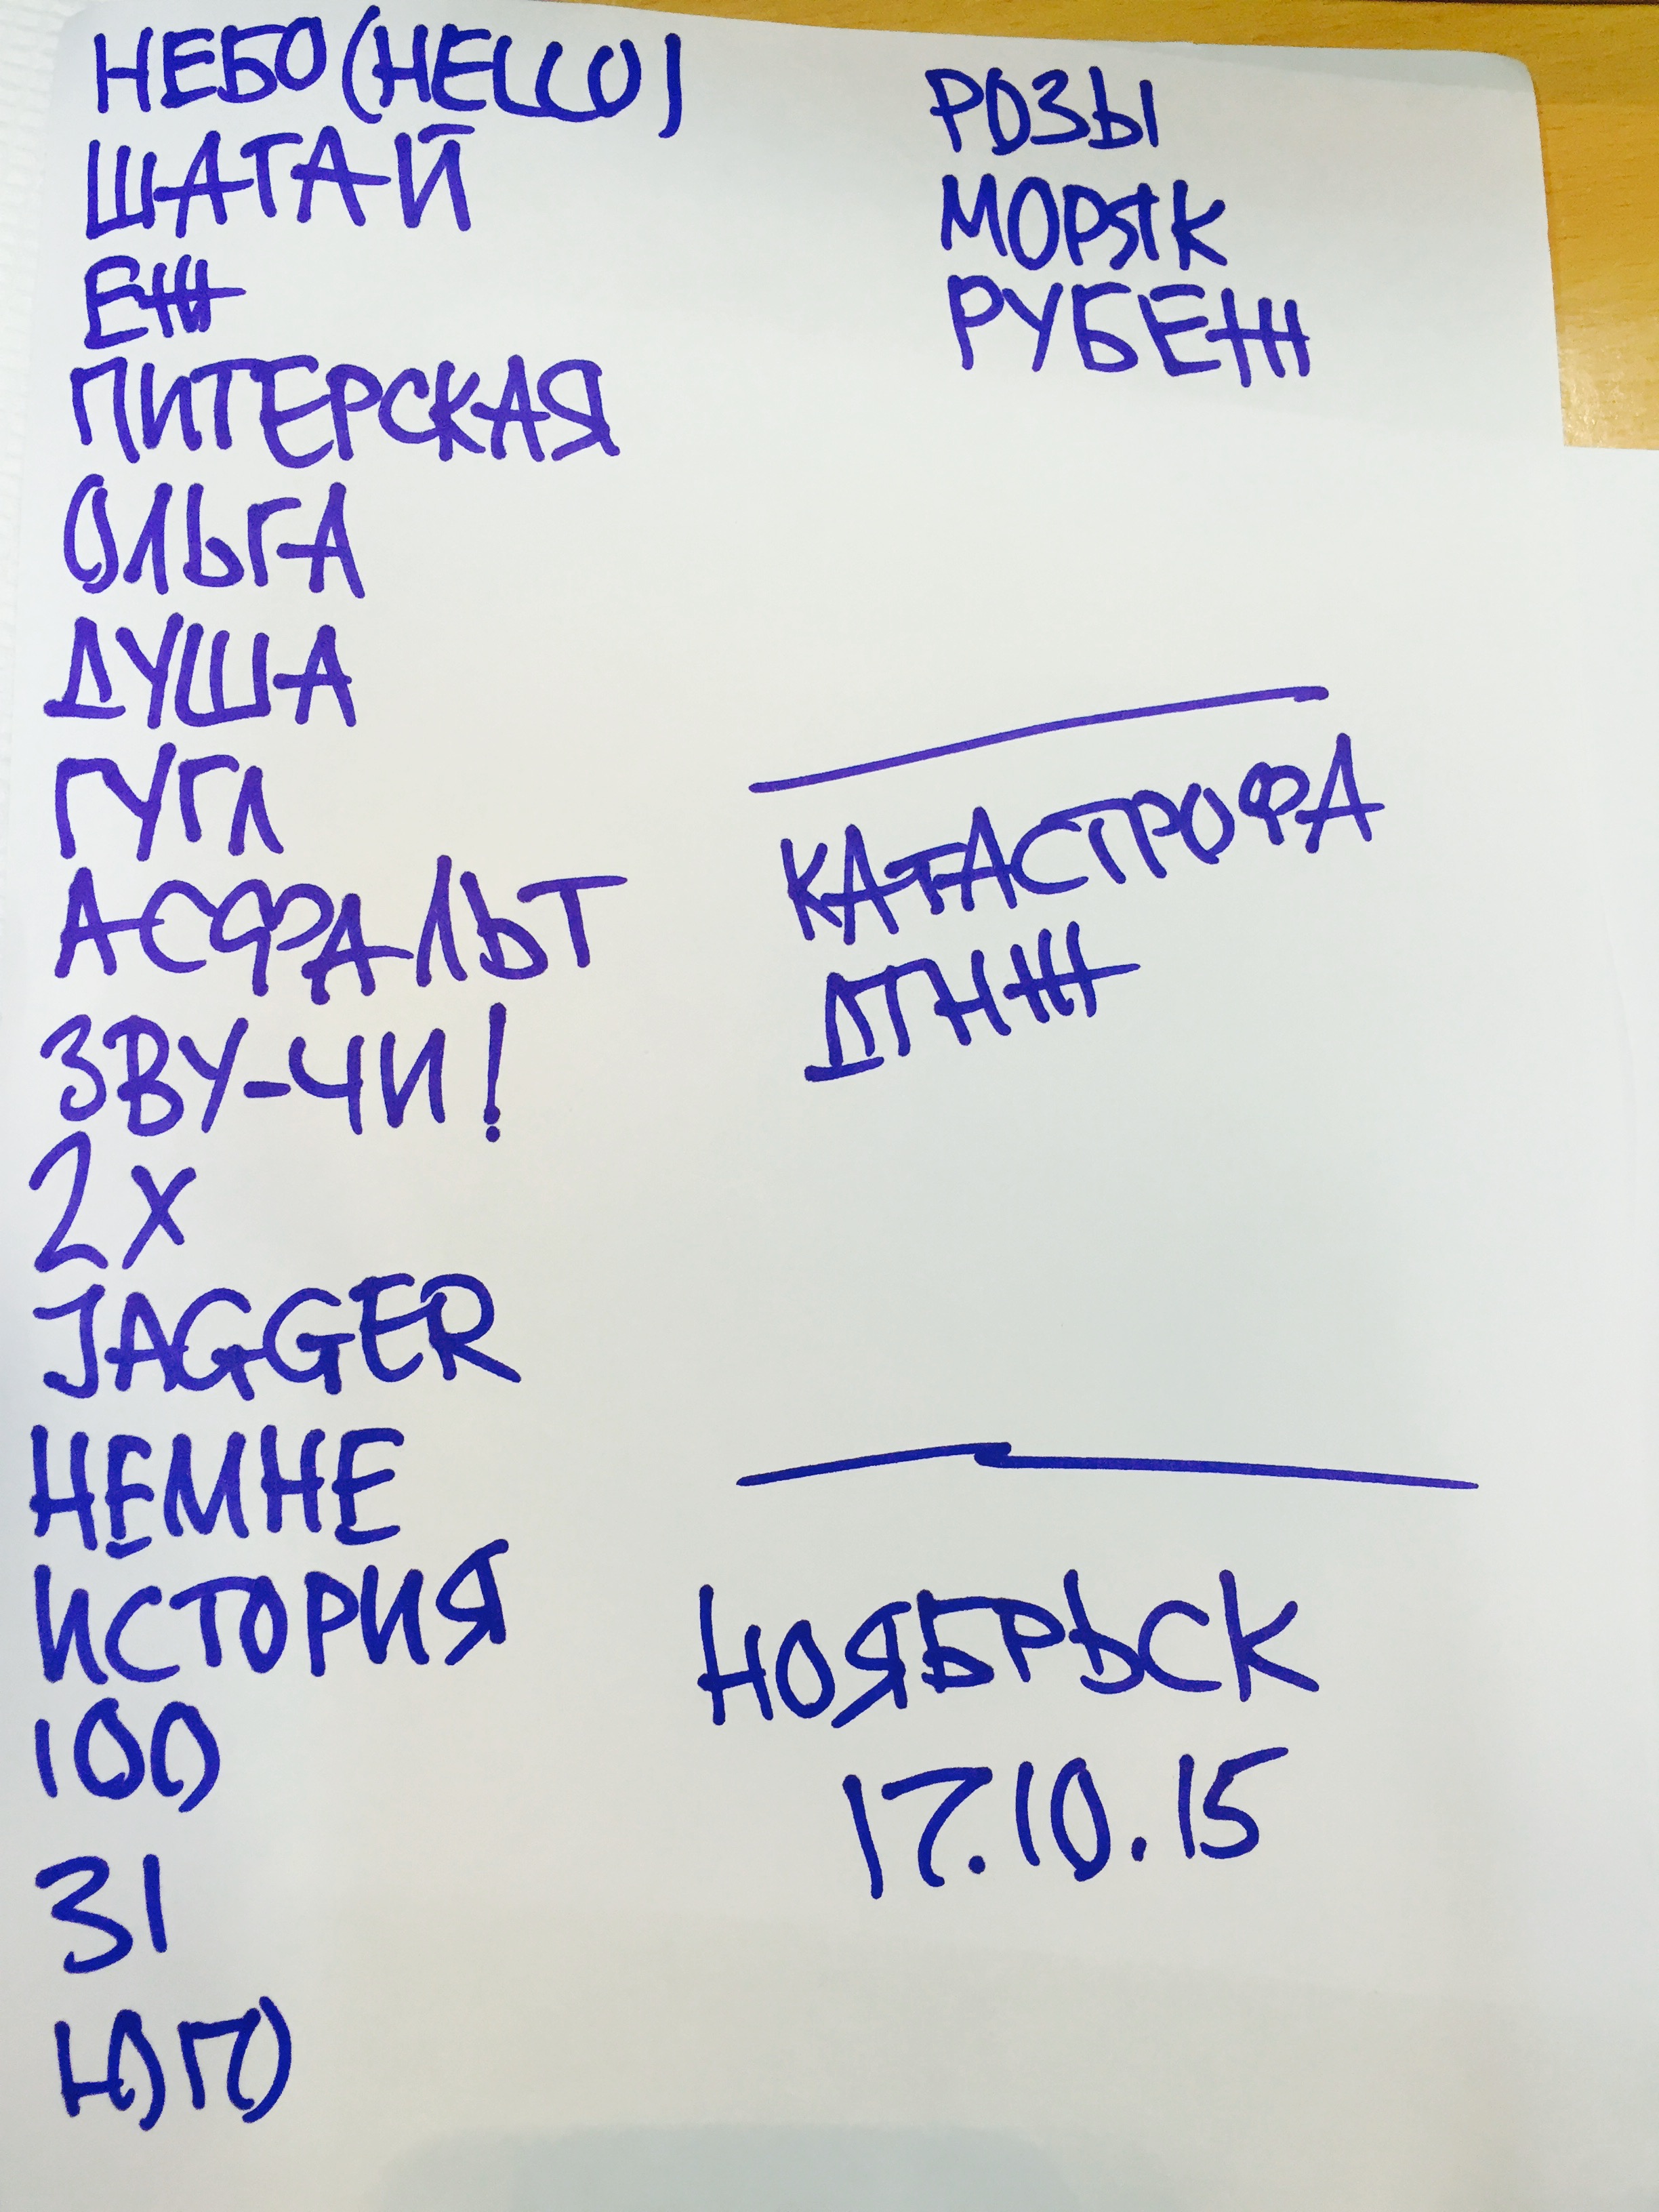 НЕБО (HELLO)
ШАГАЙ
ЕЖ
ПИТЕРСКАЯ
ОЛЬГА
ДУША
ГУГЛ
АСФАЛЬТ
ЗВУ-ЧИ!
2Х
JAGGER
НЕМНЕ
ИСТОРИЯ
100
31
ЮГ
РОЗЫ
МОРЯК
РУБЕЖ
КАТАСТРОФА
ДПНЖ
НОЯБРЬСК
17.10.15